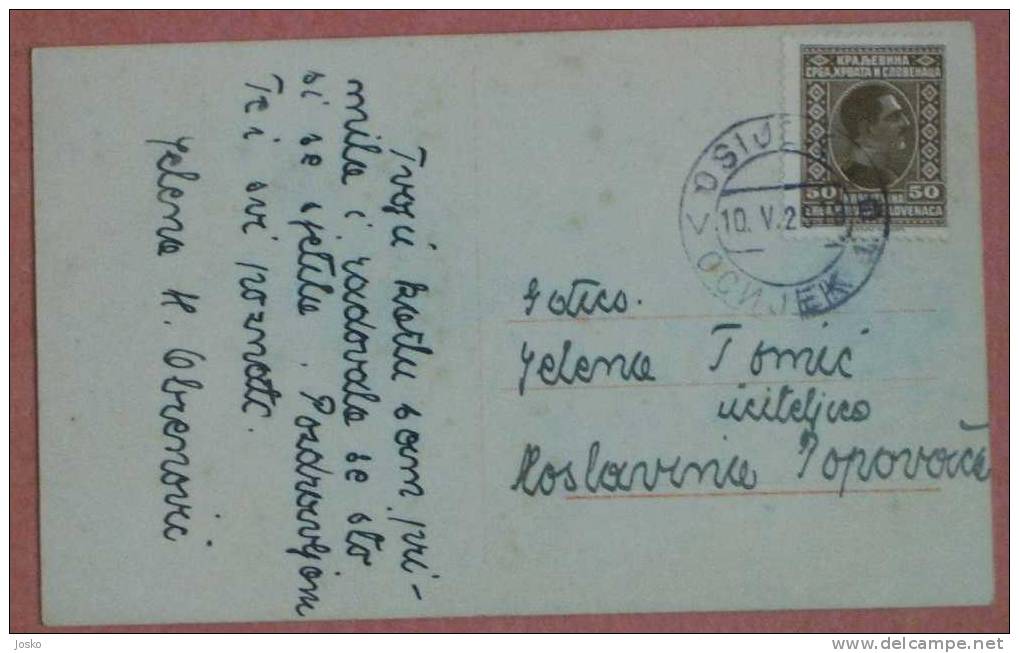 Tvoju kartu sam pri-
mila i radovala se što
si se sjetila. Pozdravljam
Te i svi poznati.
Jelena H. Obrenović
КРАЉЕВИНА
СРБА, ХРВАТА И СЛОВЕНАЦА
50 50
OSIJEK
10. V. 2
ОСИЈЕК
Gđica.
Jelena Tomić
učiteljica
Moslavina Popovača
Josko
www.delcampe.net